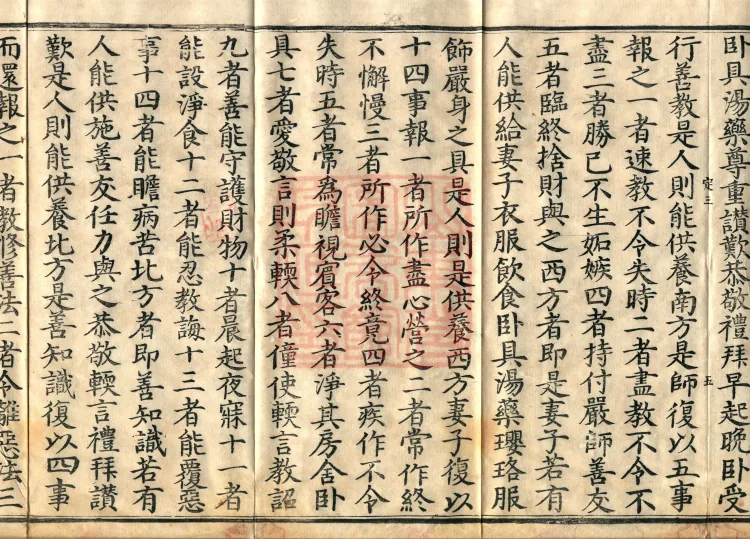 卧具湯藥尊重讃歎恭敬禮拜早起晚卧受
行善教是人則能供養南方是師復以五事
定三
五
報之一者速教不令失時二者盡教不令不
盡三者勝已不生妬嫉四者持付嚴師善友
五者臨終捨財與之西方者即是妻子若有
人能供給妻子衣服飲食卧具湯藥瓔珞服
飾嚴身之具是人則是供養西方妻子復以
十四事報一者所作盡心營之二者常作終
不懈慢三者所作必令終竟四者疾作不令
失時五者常爲瞻視賓客六者淨其房舍卧
具七者愛敬言則柔輭八者僮使輭言教詔
九者善能守護財物十者晨起夜寐十一者
能設淨食十二者能忍教誨十三者能覆惡
事十四者能瞻病苦北方者即善知識若有
人能供施善友任力與之恭敬輭言禮拜讃
歎是人則能供養北方是善知識復以四事
而還報之一者教修善法二者令離惡法三